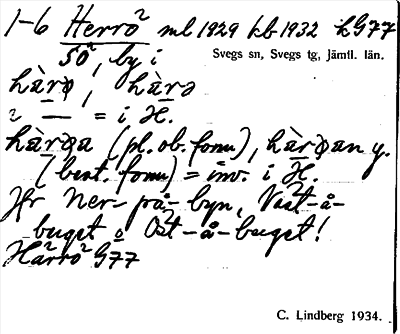 1-6 Herrö² ml 1929 hb 1932 hG77
SO², by i
Svegs sn, Svegs tg, Jämtl. län.
hàrə, hàrə
2 — = i H.
(pl. ob. form), y.
(best. form) = inv. i H.
Jfr Ner-på-byn, Väst-å-
buget o Öst-å-buget!
Härrö² G77
C. Lindberg 1934.